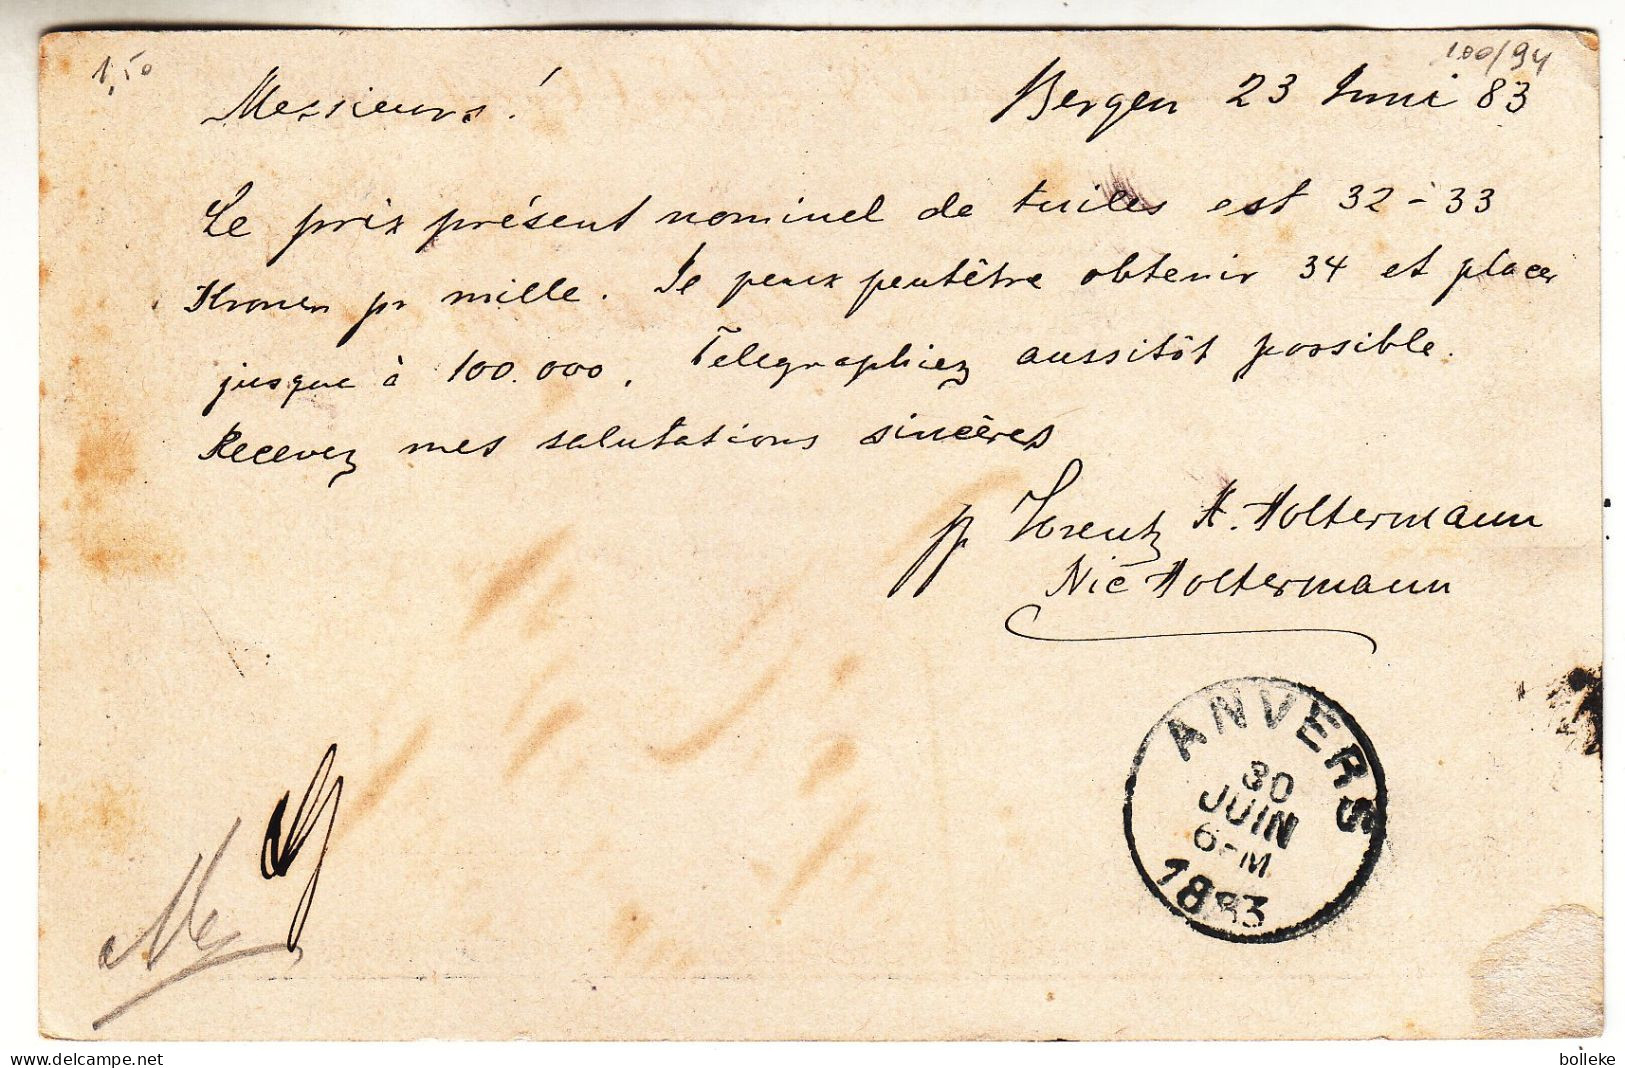 1,50
100/94
Messieurs!
Bergen 23 Juni 83
Le prix présent nominel de tuiles est 32-33
Kronen pr mille. Je peux peutêtre obtenir 34 et placer
jusque à 100.000. Telegraphiez aussitôt possible.
Recevez mes salutations sincères
pp Lorentz H. Holtermann
Nic Holtermann
ANVERS
30
JUIN
6-M
1883
delcampe.net
bolleke